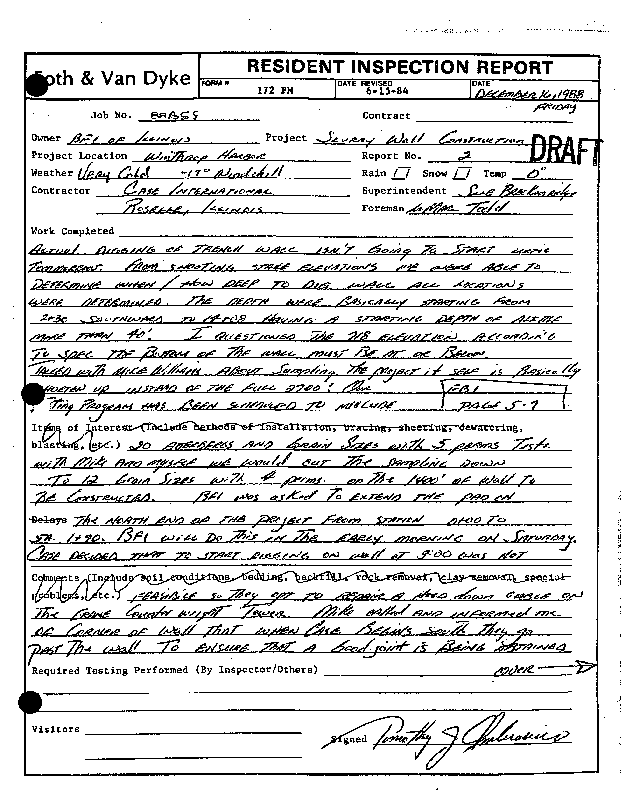 Foth & Van Dyke
RESIDENT INSPECTION REPORT
FORM # 172 PM
DATE REVISED 6-15-84
DATE DECEMBER 16, 1988
FRIDAY
Job No. Contract
Owner BFI OF ILLINOIS Project SLURRY WALL CONSTRUCTION
DRAFT
Project Location WINTHROP HARBOR Report No. 2
Weather VERY COLD -17° WINDCHILL Rain Snow Temp 0°
Contractor CASE INTERNATIONAL Superintendent
ROSELLE, ILLINOIS Foreman Todd
Work Completed
ACTUAL DIGGING OF TRENCH WALL ISN'T GOING TO START UNTIL
TOMORROW. FROM SHOOTING STAKE ELEVATIONS WE WERE ABLE TO
DETERMINE WHEN / HOW DEEP TO DIG. WALL ALL LOCATIONS
WERE DETERMINED. THE DEPTH WERE BASICALLY STARTING FROM
SOUTHWARD TO HAVING A STARTING DEPTH OF
MORE THAN 40'. I QUESTIONED THE 718 ELEVATION ACCORDING
TO SPEC THE BOTTOM OF THE WALL MUST BE AT OR BELOW.
TALKED WITH MIKE ABOUT SAMPLING. THE PROJECT IT SELF IS BASICALLY
SHORTEN UP INSTEAD OF THE FULL 2700'.
TING PROGRAM HAS BEEN SCHEDULED TO INCLUDE
EBI
PAGE 5-7
Items of Interest (Include methods of installation, bracing, sheeting, dewatering,
blasting, etc.) 30 ATTERBERGS AND GRAIN SIZES WITH 5 PERMS TESTS
WITH MIKE AND MYSELF WE WOULD CUT THE SAMPLING DOWN
TO 12 GRAIN SIZES WITH 4 PERMS. ON THE 1400' OF WALL TO
BE CONSTRUCTED. BFI WAS ASKED TO EXTEND THE PAD ON
Delays THE NORTH END OF THE PROJECT FROM STATION 0+00 TO
STA. 1+90. BFI WILL DO THIS IN THE EARLY MORNING ON SATURDAY.
CASE DECIDED THAT TO START DIGGING ON WALL AT 9:00 WAS NOT
Comments (Include soil conditions, bedding, backfill, rock removal, clay removal, special
problems, etc.) FEASIBLE SO THEY OPT TO REPAIR A HOLD DOWN CABLE ON
THE CRANE COUNTER WEIGHT TOWER. MIKE CALLED AND INFORMED ME
OF CORNER OF WALL THAT WHEN CASE BEGINS SOUTH THEY GO
PAST THE WALL TO ENSURE THAT A GOOD JOINT IS BEING OBTAINED
Required Testing Performed (By Inspector/Others) OVER
Visitors
Signed Timothy J